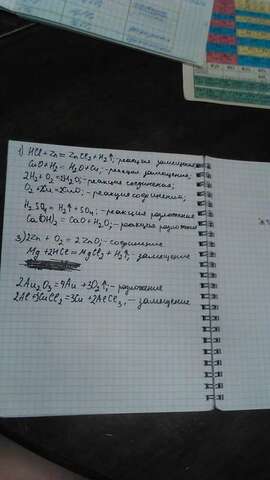 1) HCl + Zn = ZnCl₂ + H₂↑; - реакция замещения
CuO + H₂ = H₂O + Cu; - реакция замещения;
2H₂ + O₂ = 2H₂O; - реакция соединения;
O₂ + 2Cu = 2CuO; - реакция соединения;
H₂SO₄ = H₂↑ + SO₄; - реакция разложения
Ca(OH)₂ = CaO + H₂O; - реакция разложен
3) 2Zn + O₂ = 2ZnO; - соединение
Mg + 2HCl = MgCl₂ + H₂↑; - замещение
2Au₂O₃ = 4Au + 3O₂↑; - разложение
2Al + 3CuCl₂ = 3Cu + 2AlCl₃; - замещение